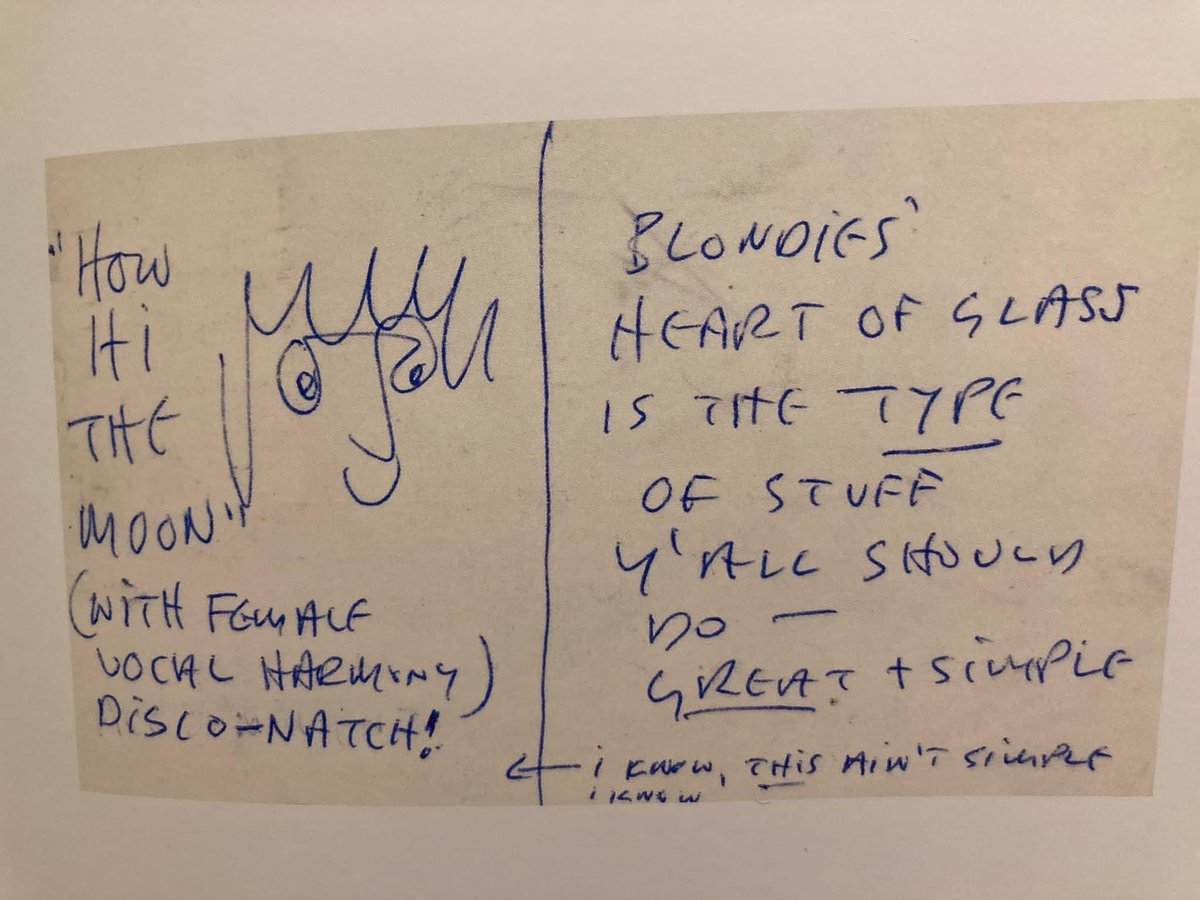 "HOW
HI
THE
MOON"
(WITH FEMALE
VOCAL HARMONY)
DISCO-NATCH!
BLONDIES'
HEART OF GLASS
IS THE TYPE
OF STUFF
Y'ALL SHOULD
DO —
GREAT + SIMPLE
← i KNOW, THIS AIN'T SIMPLE
i KNOW